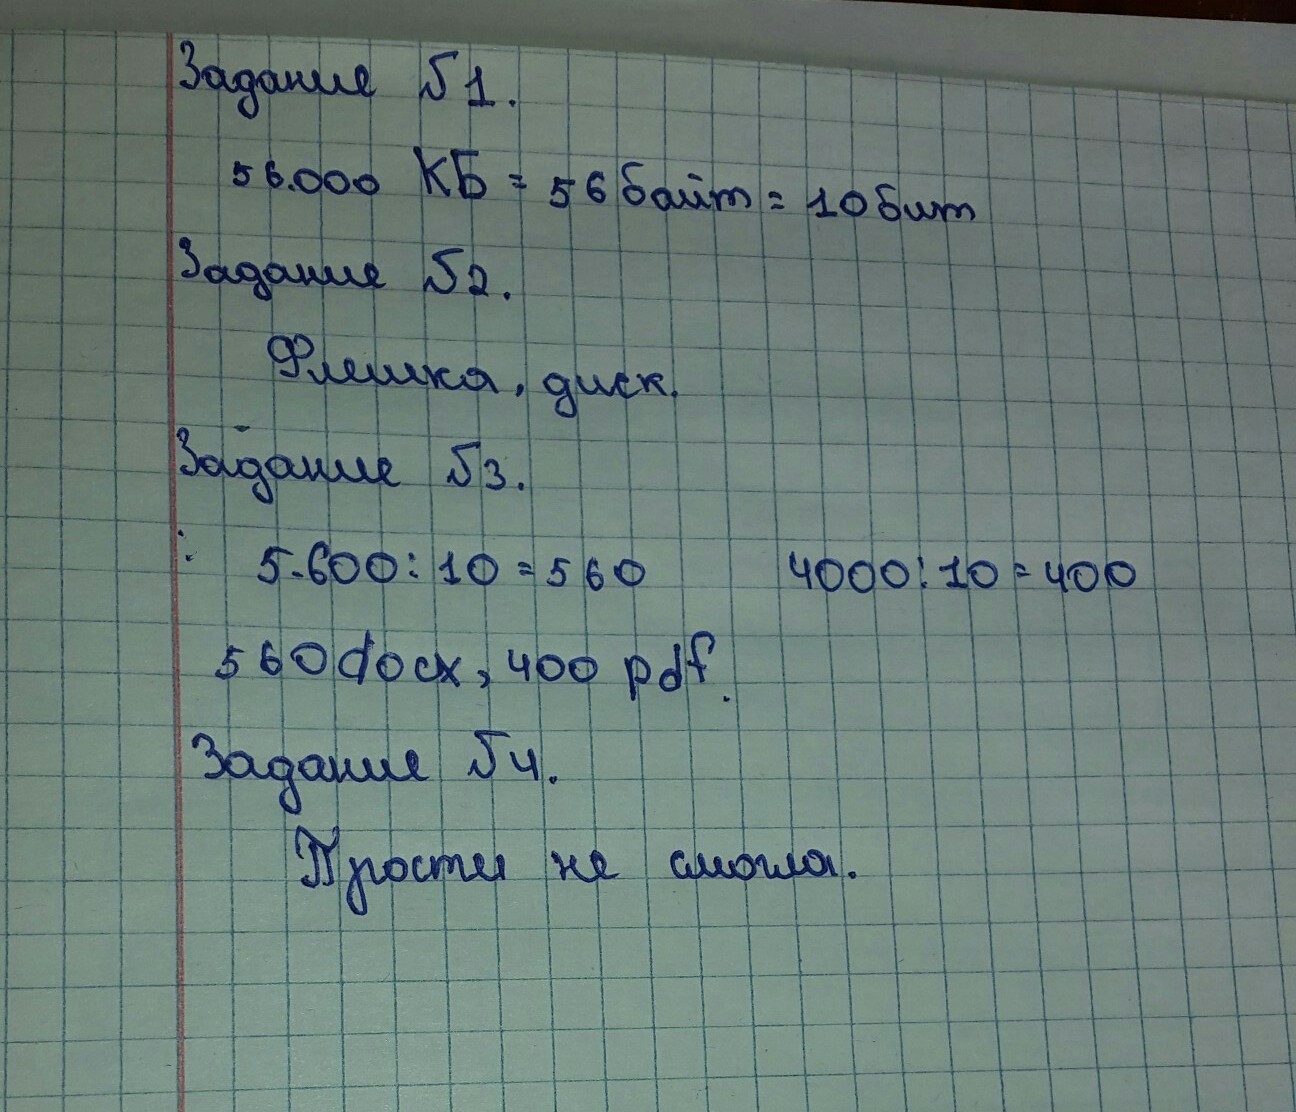 Задание №1.
56.000 КБ = 56 байт = 10 бит
Задание №2.
Флешка, диск.
Задание №3.
5.600 : 10 = 560 4000 : 10 = 400
560 docx, 400 pdf.
Задание №4.
Прости не смогла.